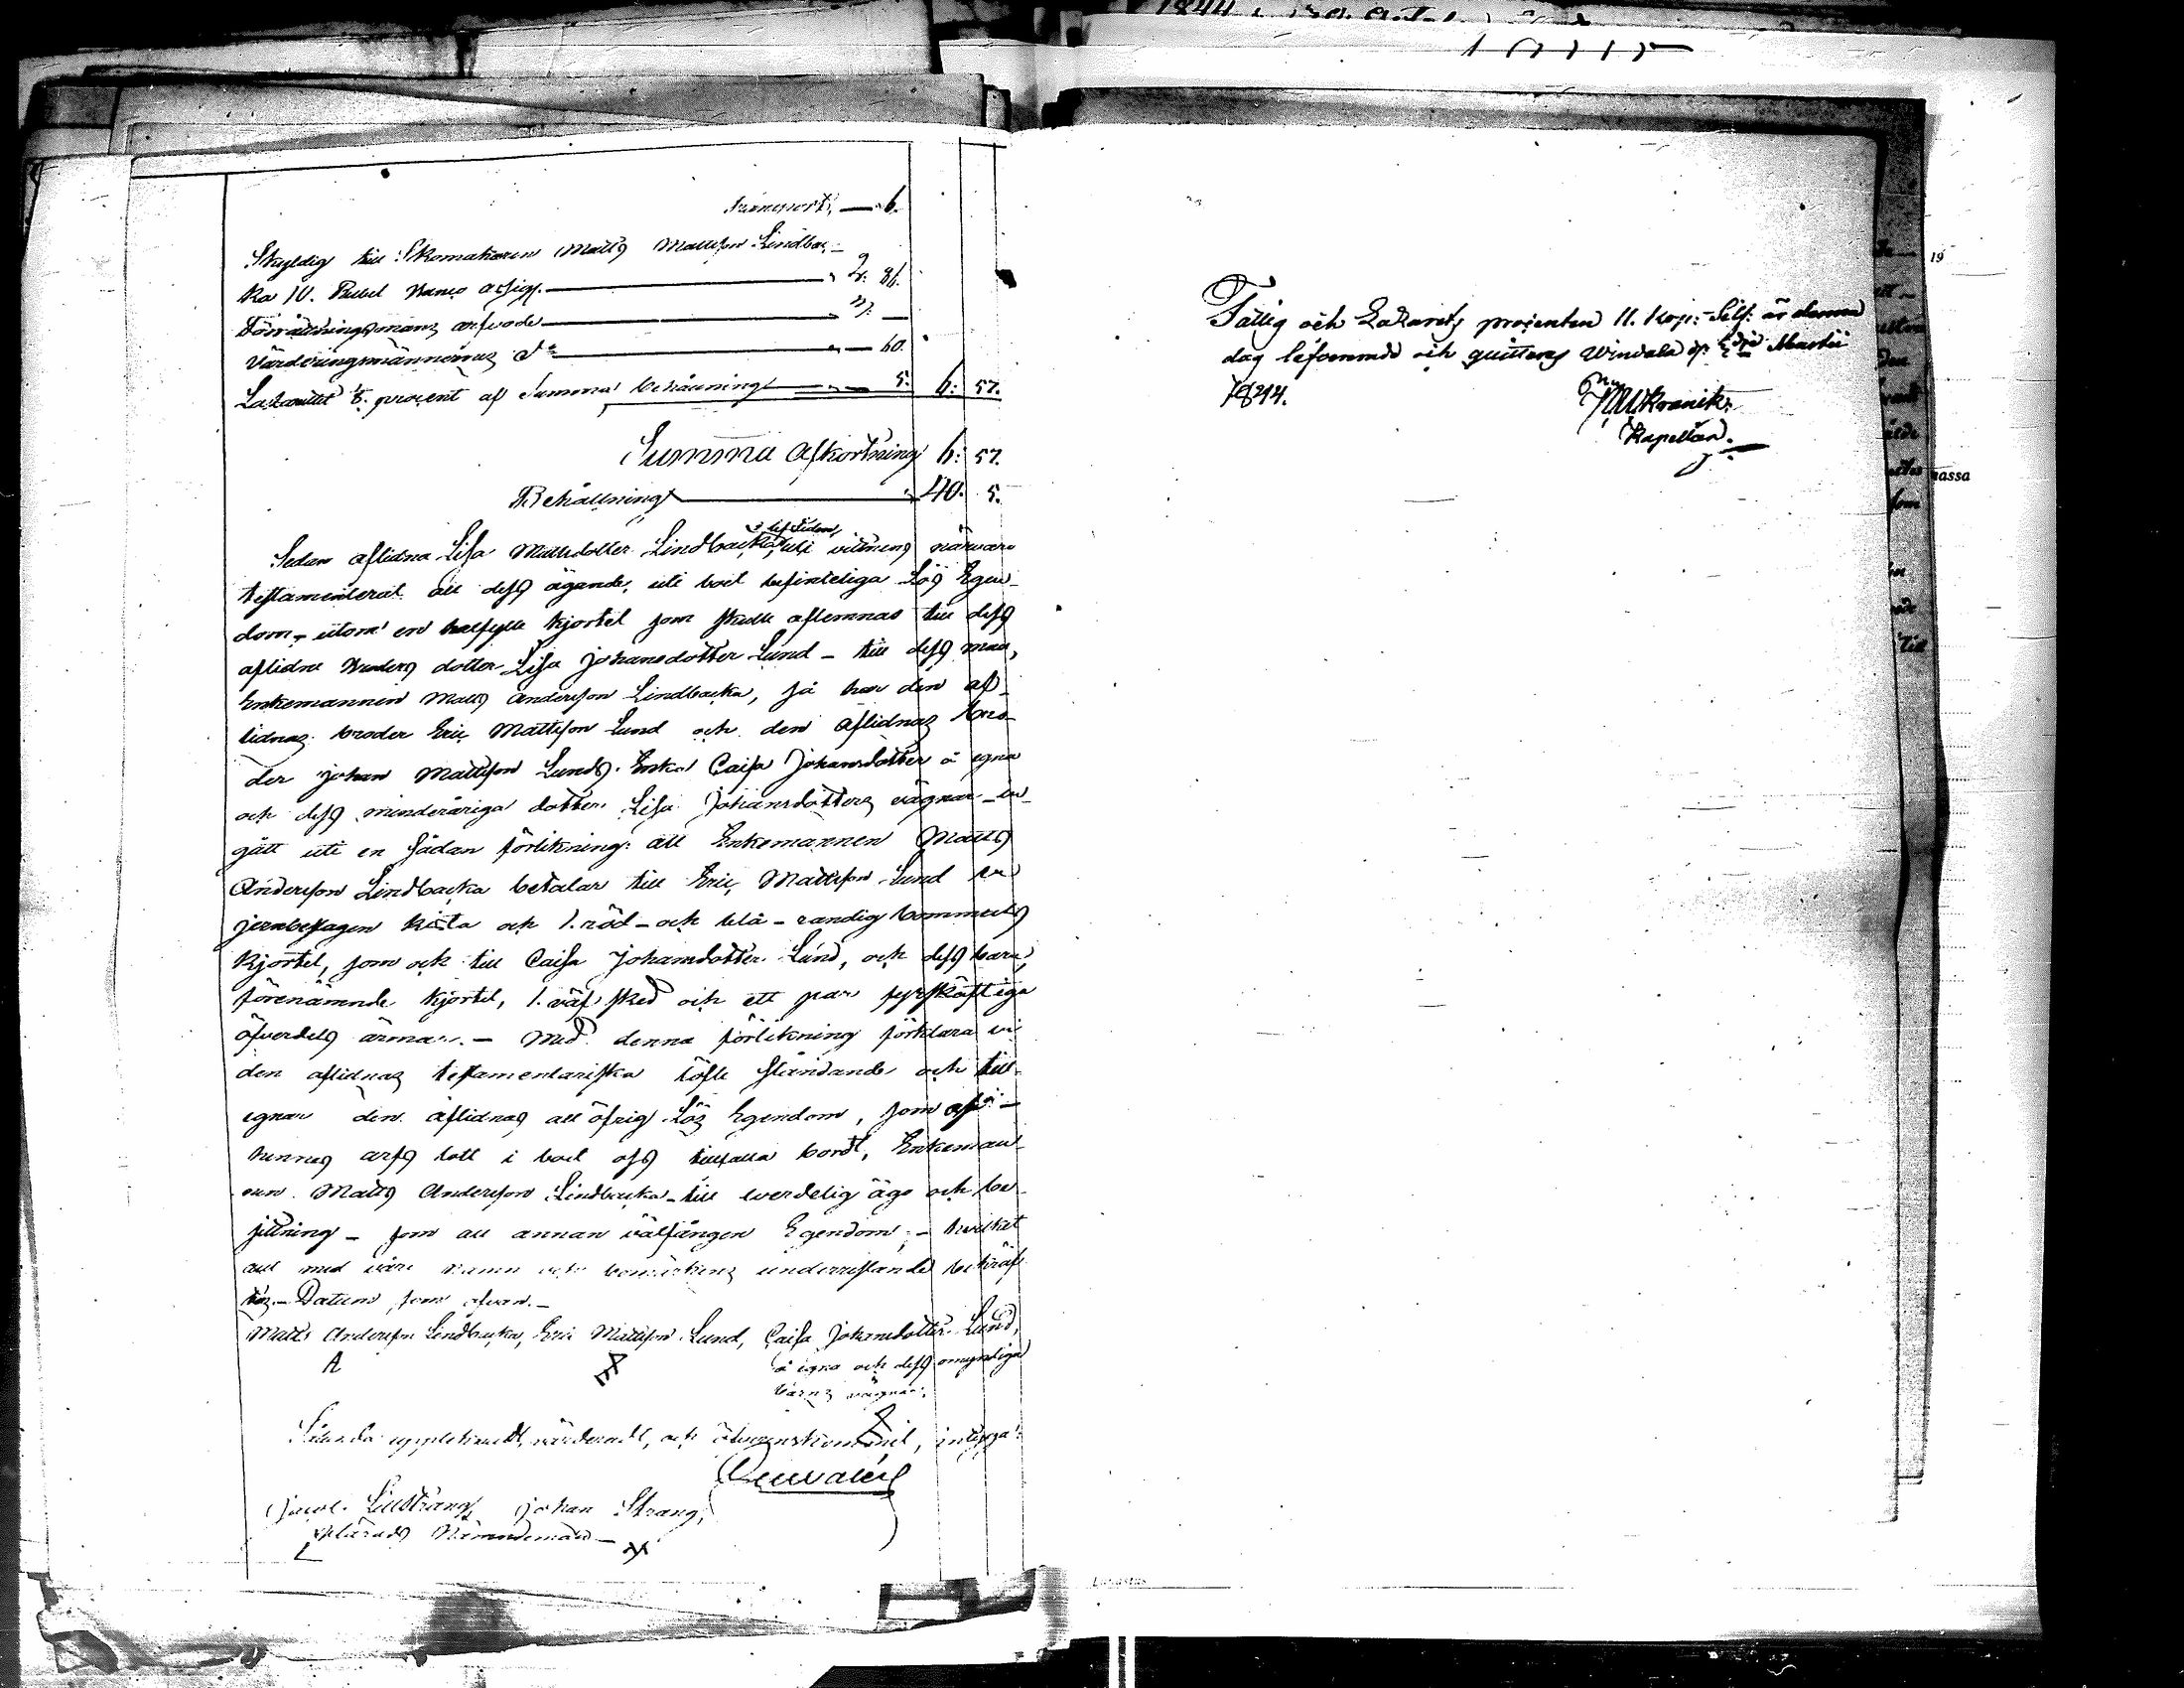 Transport, — 6.
Skyldig till Skomakaren Matts Mattsson Lindbac-
ka 10. Rubel Banco assign. — 2. 86.
Förrättningsmans arfvode — 3. —
Värderingsmännernas do — 60.
Lazarettet procent af Summa behållning — 5. 6: 57.
Summa Afkortning 6: 57.
Behållning — 40. 5.
Sedan aflidna Lisa Mattsdotter Lindbacka, i lifstiden, uti vittnens närvaro
testamenterat all dess ägande, uti boet befinteliga Lös Egen-
dom, utom en halfylle kjortel som skulle aflemnas till dess
aflidne Broders dotter Lisa Johansdotter Lund - till dess man,
Enkemannen Matts Andersson Lindbacka, så har den af-
lidnas broder Eric Mattsson Lund och den aflidnas bro-
der Johan Mattsson Lunds Enka Caisa Johansdotter å egna
och dess minderåriga dotter Lisa Johansdotters vägnar in-
gått uti en sådan förlikning: att Enkemannen Matts
Andersson Lindbacka betalar till Eric Mattsson Lund en
jernbeslagen kista och 1. röd- och blå-randig bommulls
kjortel, som ock till Caisa Johansdotter Lund, och dess barn,
förenämnde kjortel, 1. väf sked och ett par fyrskäftiga
öfverdels ärmar. - Med denna förlikning förklara vi
den aflidnas testamentariska löfte ståndande och till-
egnar den aflidnas all öfrig Lös Egendom, som af
hennes arfs lott i boet oss tillfalla bordt, Enkeman-
nen Matts Andersson Lindbacka - till everdelig ägo och be-
sittning - som all annan välfången Egendom; - hvilket
allt med våra namn och bomärkens underristande bekräf-
tas. - Datum som ofvan. -
Matts Andersson Lindbacka, Eric Mattsson Lund, Caisa Johansdotter Lund,
å egna och dess omyndiga
barns vägnar.
Sålunda upptecknadt, värderadt, och öfverenskommit, intyga:
Jacob Lillstrang, Johan Strang,
Nämndeman
Fattig och Lazarets procenten 11. kop: Silf: är denna
dag lefvererade och quitteras Windala d. 2dra Martii
1844.
Kapellan.